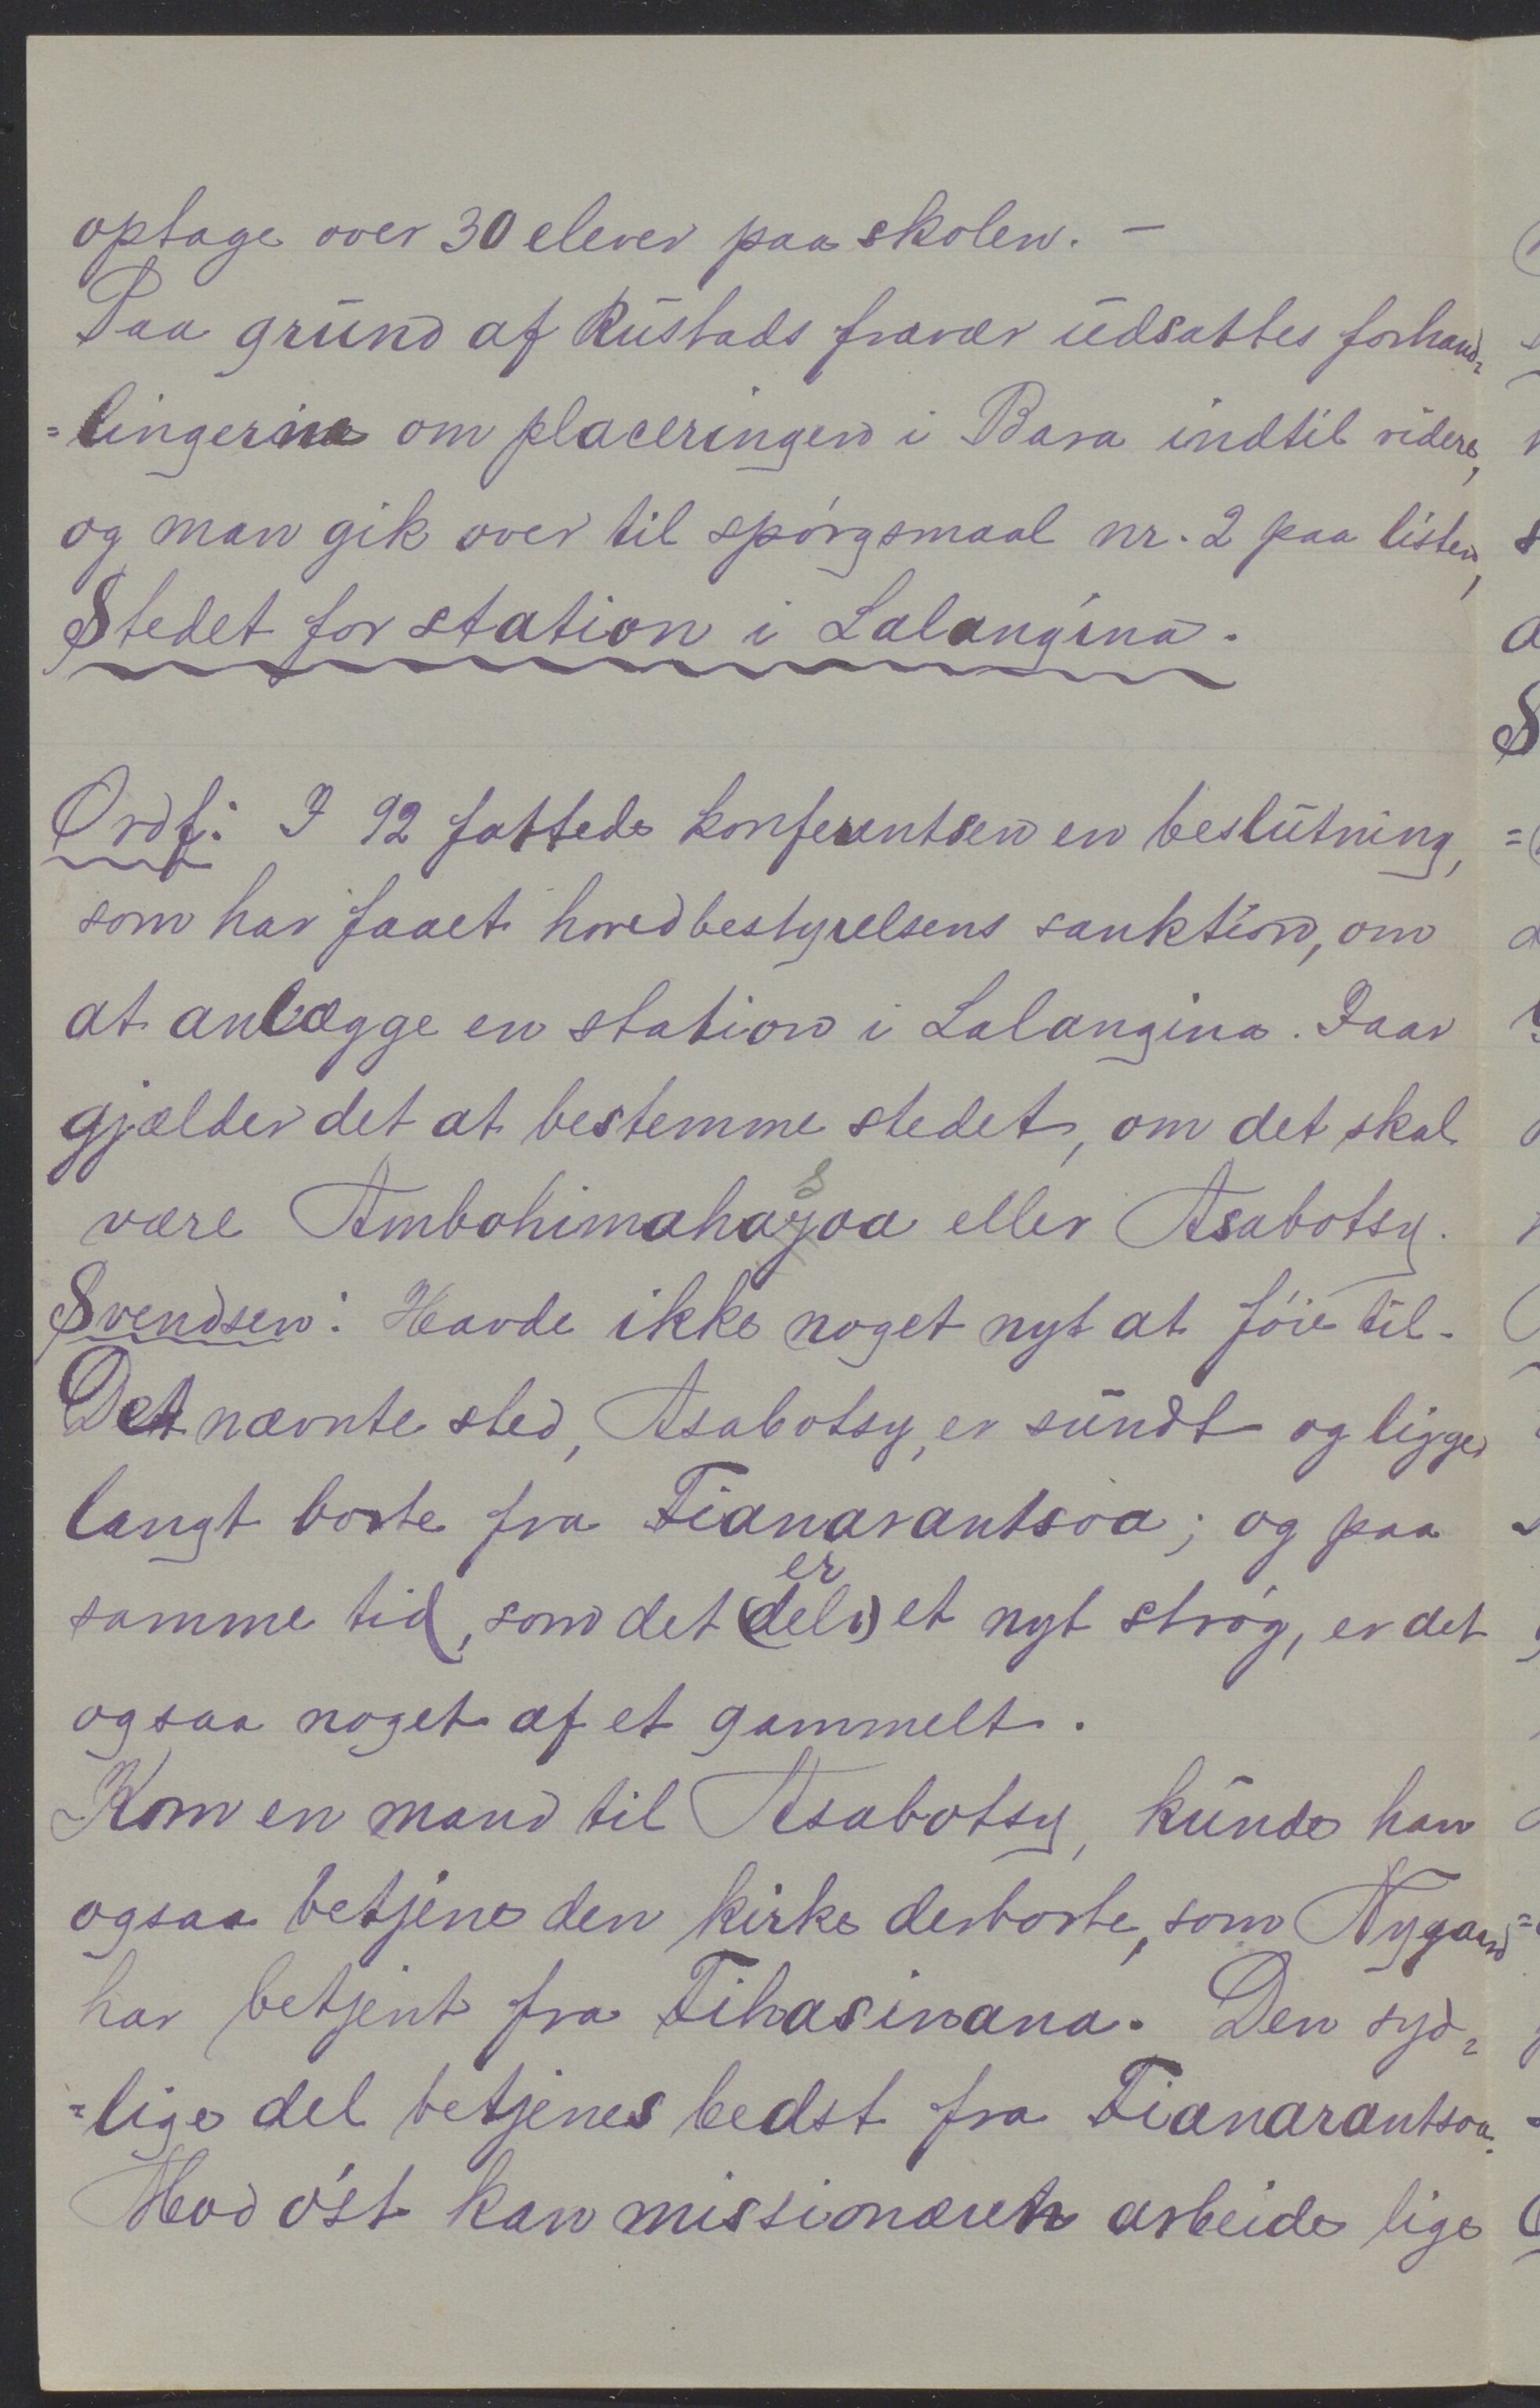 optage over 30 elever paa skolen. –
Paa grund af Rustads fravær udsattes forhand-
=lingerne om placeringen i Bara indtil videre,
og man gik over til spórgsmaal nr. 2 paa listen,
Stedet for station i Lalangina.
Ordf: I 92 fattede konferentsen en beslutning,
som har faaet hovedbestyrelsens sanktion, om
at anlægge en station i Lalangina. Iaar
gjælder det at bestemme stedet, om det skal
være Ambohimahasoa eller Asabotsy.
Svendsen: Havde ikke noget nyt at fóie til.
Det nævnte sted, Asabotsy, er sundt og ligger
langt borte fra Fianarantsoa; og paa
er
samme tid, som det (dels) et nyt stróg, er det
ogsaa noget af et gammelt.
Kom en mand til Asabotsy, kunde han
ogsaa betjene den kirke derborte, som Nygaard
har betjent fra Fihasinana. Den syd-
=lige del betjenes bedst fra Fianarantsoa.
Mod óst kan missionæren arbeide lige